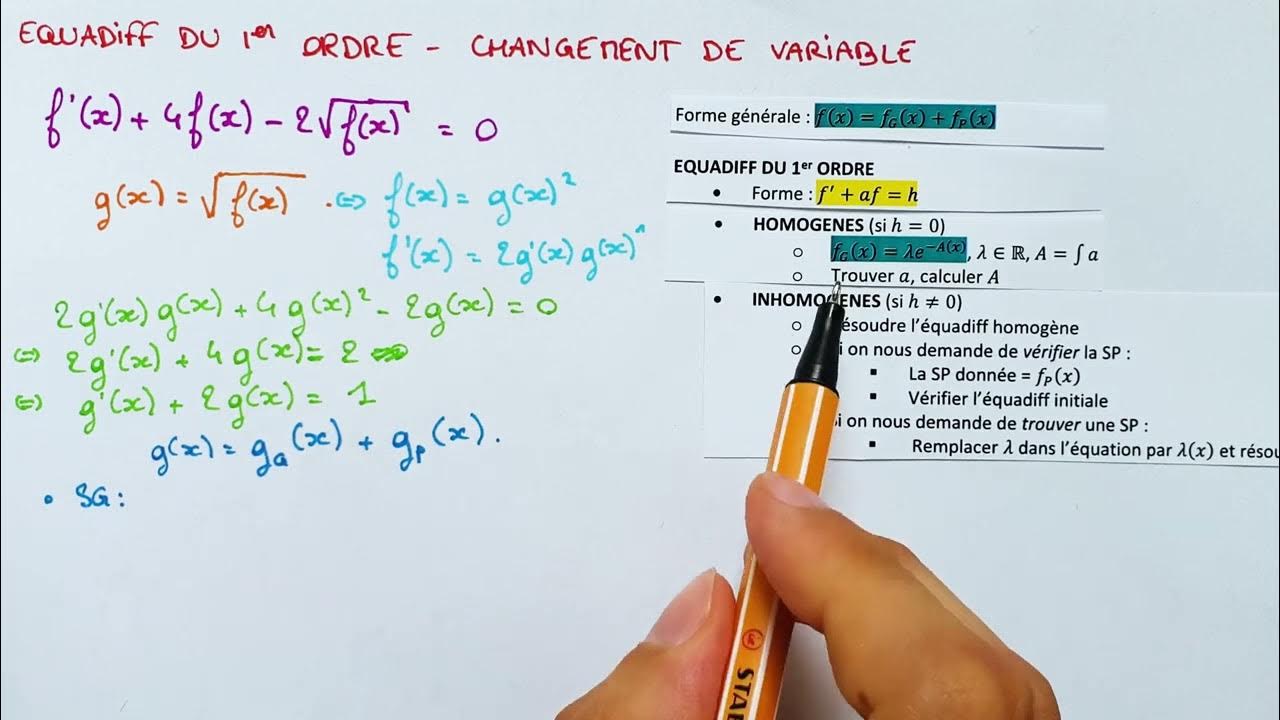 EQUADIFF DU 1er ORDRE - CHANGEMENT DE VARIABLE
f'(x) + 4f(x) - 2√f(x) = 0
g(x) = √f(x) . ⇔ f(x) = g(x)²
f'(x) = 2g'(x) g(x)¹
2g'(x) g(x) + 4 g(x)² - 2g(x) = 0
⇔ 2g'(x) + 4 g(x) = 2
⇔ g'(x) + 2g(x) = 1
g(x) = gG(x) + gp(x).
• SG :
Forme générale : f(x) = fG(x) + fP(x)
EQUADIFF DU 1er ORDRE
• Forme : f' + af = h
• HOMOGENES (si h = 0)
○ fG(x) = λe^−A(x), λ ∈ ℝ, A = ∫ a
○ Trouver a, calculer A
• INHOMOGENES (si h ≠ 0)
○ ésoudre l'équadiff homogène
○ i on nous demande de vérifier la SP :
▪ La SP donnée = fP(x)
▪ Vérifier l'équadiff initiale
i on nous demande de trouver une SP :
▪ Remplacer λ dans l'équation par λ(x) et résou
STAB